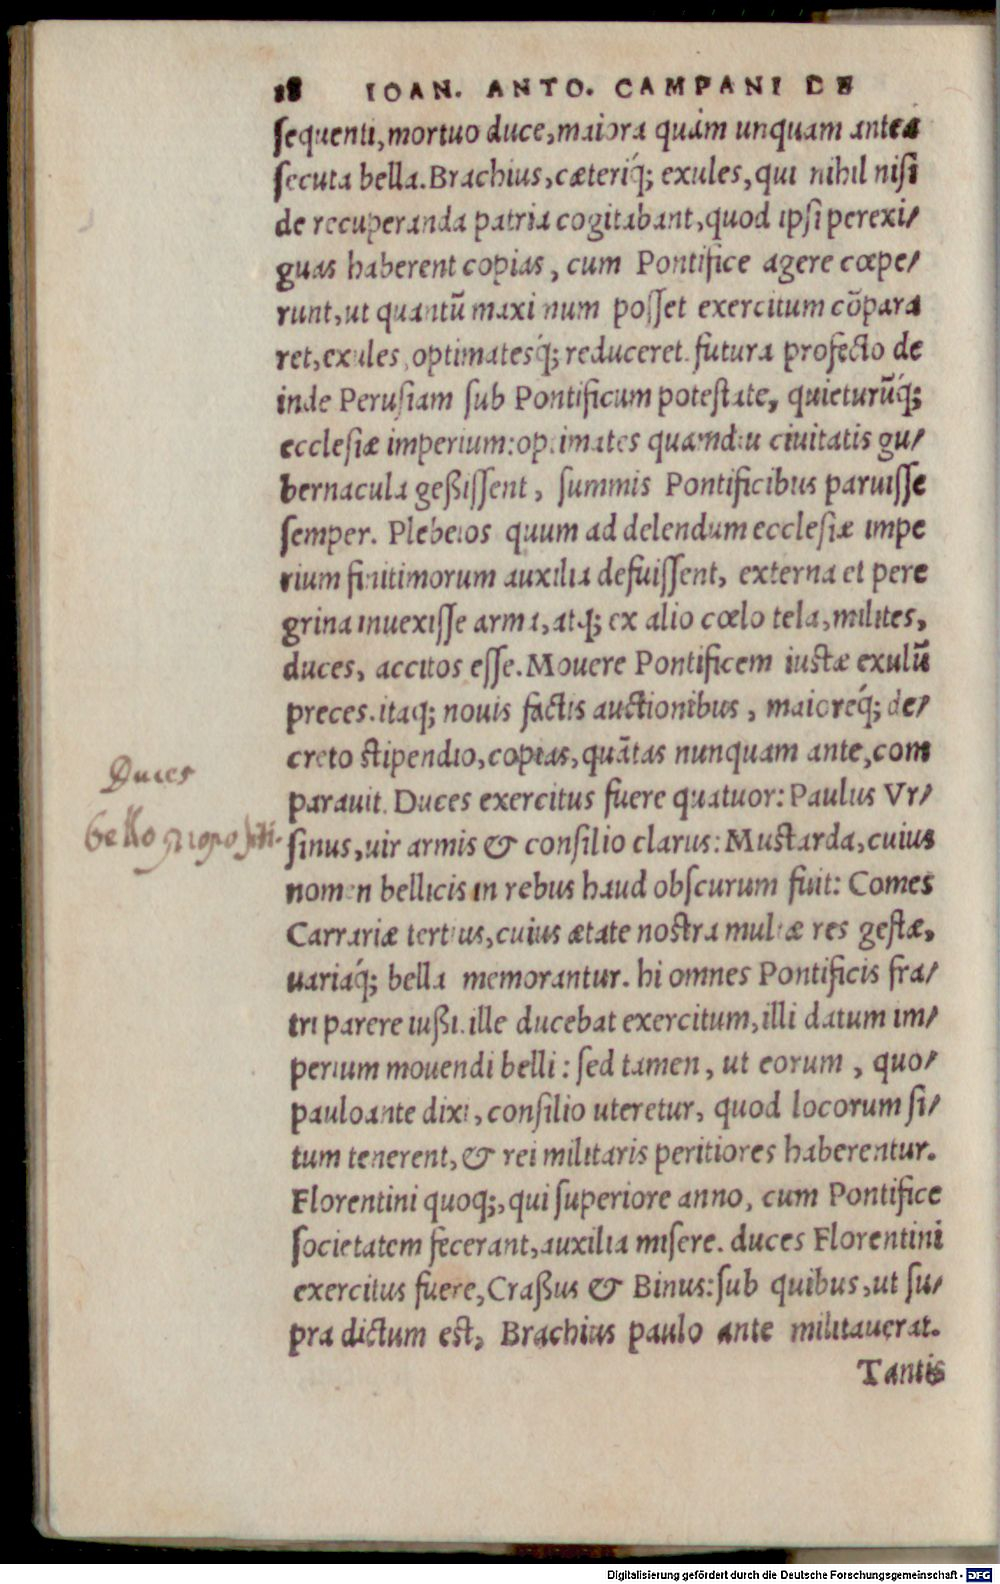 18 IOAN. ANTO. CAMPANI DE
ſequenti, mortuo duce, maiora quàm unquam anteà
ſecuta bella. Brachius, cæteriq́; exules, qui nihil niſi
de recuperanda patria cogitabant, quod ipſi perexi/
guas haberent copias, cum Pontifice agere cœpe/
runt, ut quantũ maximum poſſet exercitum cõpara
ret, exules, optimatesq́; reduceret. futura profecto de
inde Peruſiam ſub Pontificum poteſtate, quieturũq́;
eccleſiæ imperium: optimates quamdiu ciuitatis gu/
bernacula geßiſſent, ſummis Pontificibus paruiſſe
ſemper. Plebeios quum ad delendum eccleſiæ impe
rium finitimorum auxilia defuiſſent, externa et pere
grina inuexiſſe arma, atq; ex alio cœlo tela, milites,
duces, accitos eſſe. Mouere Pontificem iuſtæ exulũ
preces. itaq; nouis factis auctionibus, maioreq́; de/
creto ſtipendio, copias, quãtas nunquam ante, com
parauit. Duces exercitus fuere quatuor: Paulus Vr/
ſinus, uir armis & conſilio clarus: Muſtarda, cuius
nomen bellicis in rebus haud obſcurum fuit: Comes
Carrariæ tertius, cuius ætate noſtra multæ res geſtæ,
uariaq́; bella memorantur. hi omnes Pontificis fra/
tri parere iußi. ille ducebat exercitum, illi datum im/
perium mouendi belli: ſed tamen, ut eorum, quos
pauloante dixi, conſilio uteretur, quod locorum ſi/
tum tenerent, & rei militaris peritiores haberentur.
Florentini quoq;, qui ſuperiore anno, cum Pontifice
ſocietatem fecerant, auxilia miſere. duces Florentini
exercitus fuere, Craßus & Binus: ſub quibus, ut ſu/
pra dictum eſt, Brachius paulo ante militauerat.
Tantis
Duces
bello propoſiti.
Digitalisierung gefördert durch die Deutsche Forschungsgemeinschaft - DFG